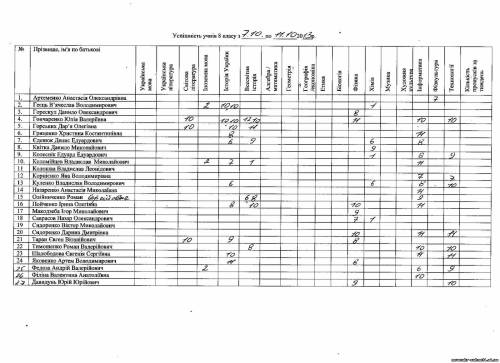 Успішність учнів 8 класу з 7.10. по 11.10 2013р.
№ Прізвище, ім'я по батькові Українська мова Українська література Світова література Іноземна мова Історія України Всесвітня історія Алгебра / математика Геометрія Географія /економіка Етика Біологія Фізика Хімія Музика Художня культура Інформатика Фізкультура Технології Кількість пропусків за тиждень
1. Артеменко Анастасія Олександрівна 7
2. Геєць В'ячеслав Володимирович 2 10,10 1
3. Данило Олександрович 8
4. Гончаренко Юлія Валеріївна 10 12 10 12 10 11 10 10
5. Горських Дар'я Олегівна 10 10 11
6. Гриценко Христина Костянтинівна 8 11
7. Денис Едуардович 6 9 6 8
8. Квітка Данило Миколайович 9
9. Едуард Едуардович 1 8 9
10. Коломійцев Владислав Миколайович 2 7 1 11
11. Владислав Леонідович
12. Яна Володимирівна 7 7
13. Куленко Владислав Володимирович 6 6 8 10
14. Назаренко Анастасія Миколаївна 11
15. Роман 6 8 9
16. Пойченко Ірина Олегівна 8 10 10 11
17. Ігор Миколайович 9
18. Назар Олександрович 7 1
19. Сидоренко Віктор Миколайович
20. Сидоренко Дарина Дмитрівна 10 11 11
21. Таран Євген Віталійович 10 9 8
22. Тимошенко Роман Валерійович 8 10 10
23. Шалободова Євгенія Сергіївна 10 11 11
24. Яковенко Артем Володимирович 11 8
25 Федоза Андрій Валерійович 2 6 9
26 Філіна Валентина Анатоліївна 10
27 Давидунь Юрій Юрійович 9 10